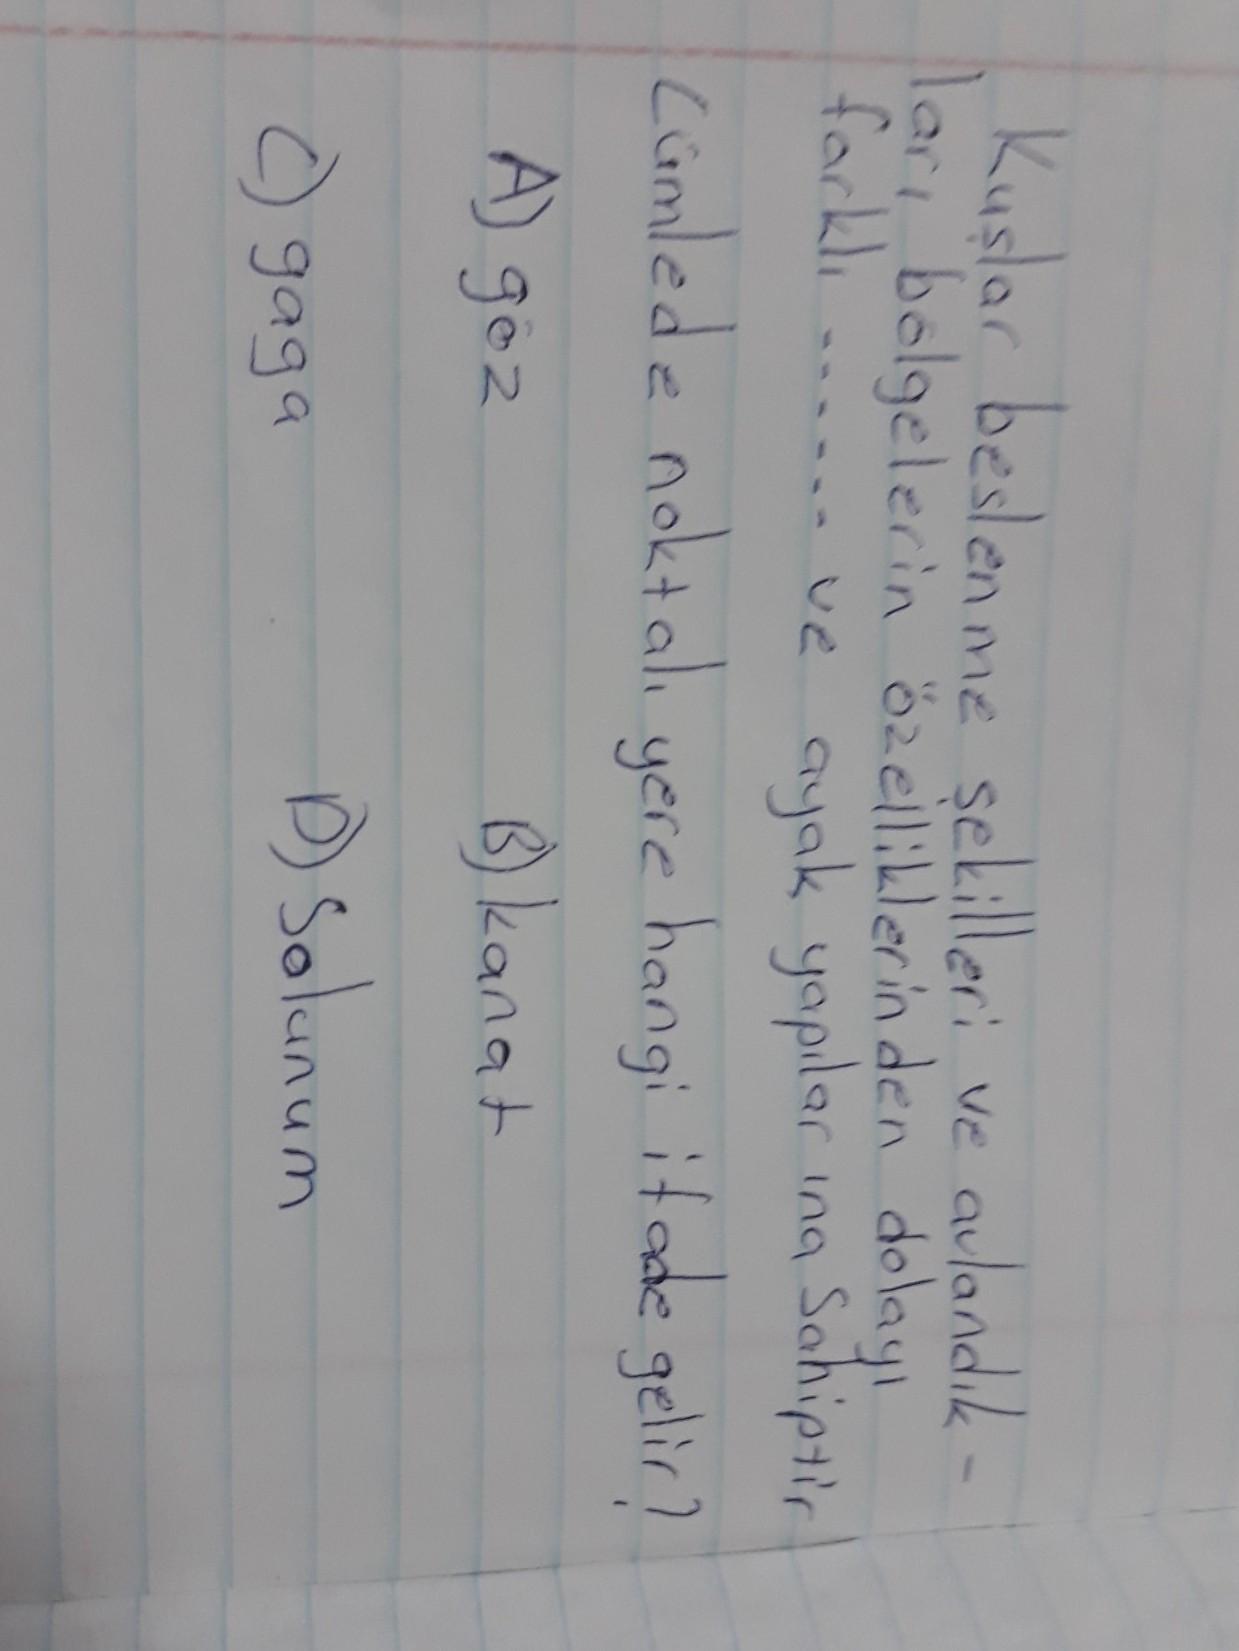 Kuşlar beslenme şekilleri ve avlandık-
ları bölgelerin özelliklerinden dolayı
farklı ....... ve ayak yapılarına Sahiptir
Cümlede noktalı yere hangi ifade gelir?
A) göz B) kanat
C) gaga D) Solunum